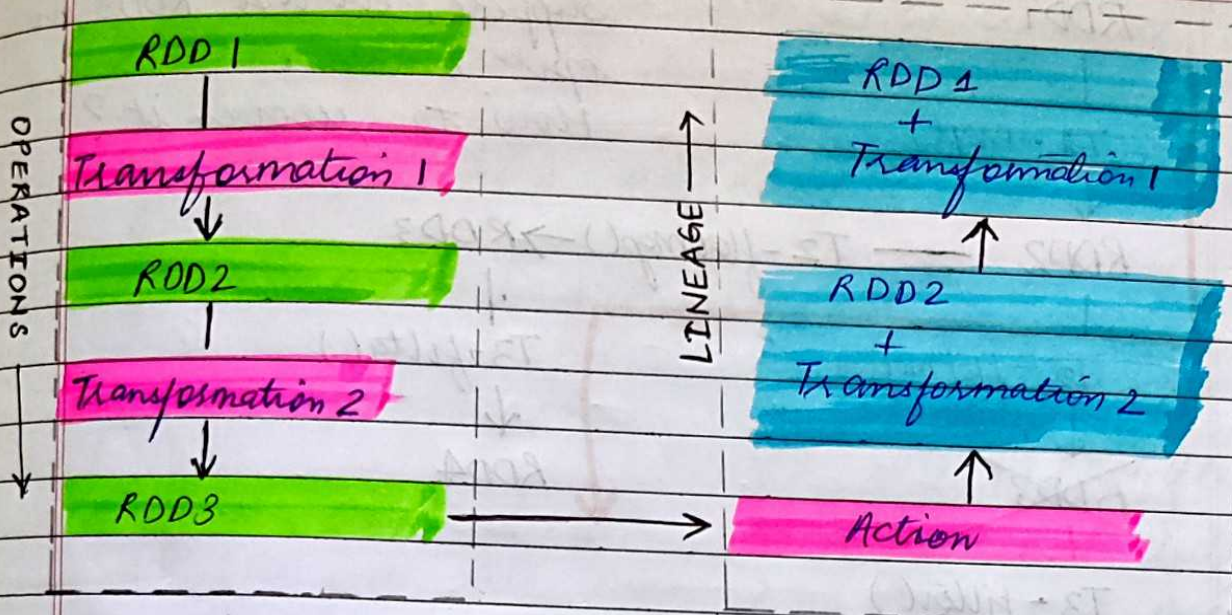 OPERATIONS
RDD 1
Transformation 1
RDD2
Transformation 2
RDD3
LINEAGE
RDD 1
+
Transformation 1
RDD2
+
Transformation 2
Action